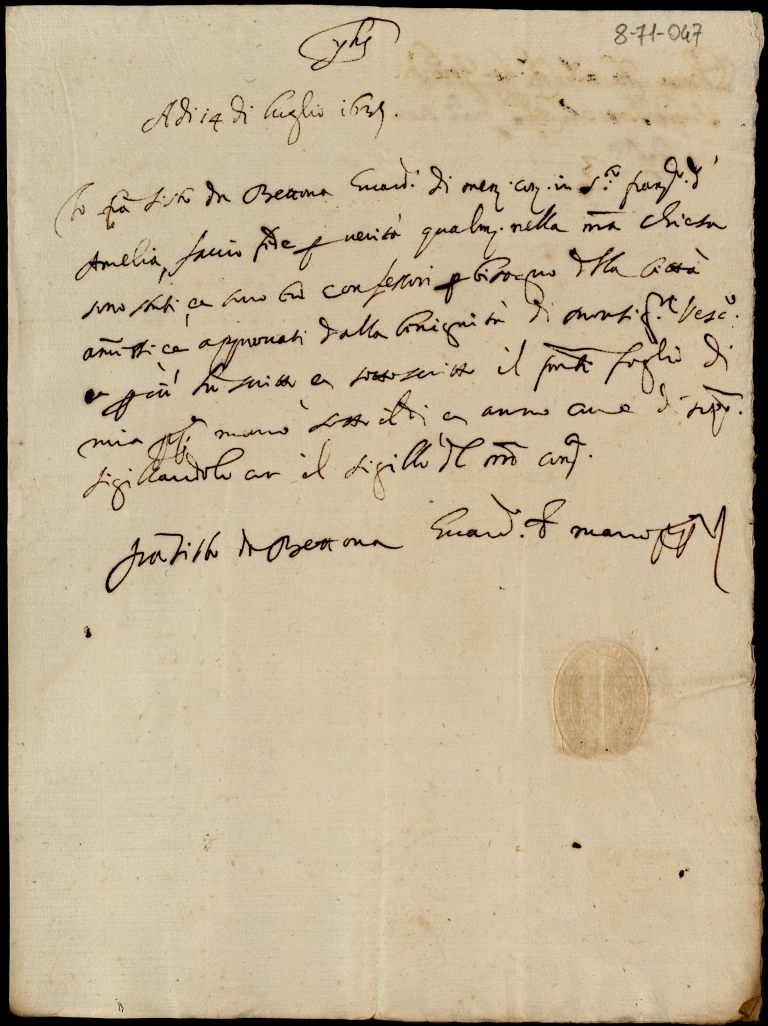 8-71-047
yhs
A di 14 di luglio 163
Io fra Sisto da Bettona Guard.º di in S.to d'
Amelia, faccio fede p verità qualm. nella nra chiesa
sono stati, et sono confessori p bisogno dlla città
et approuati dalla benignità di Monsig.re Vesc.º
et p ciò hò scritto et sottoscritto il pnte foglio di
mia pp. mano sotto il dì et anno come di sop.
sigillandolo con il sigillo dl nro
fra Sisto da Bettona Guard.º mano pp